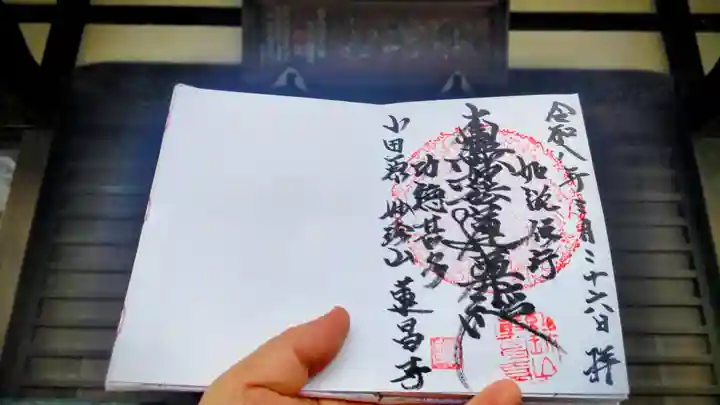 令和八年三月二十六日 拝
如説修行
南無妙法蓮華経
功徳甚多
小田原 妙珍山 蓮昌寺